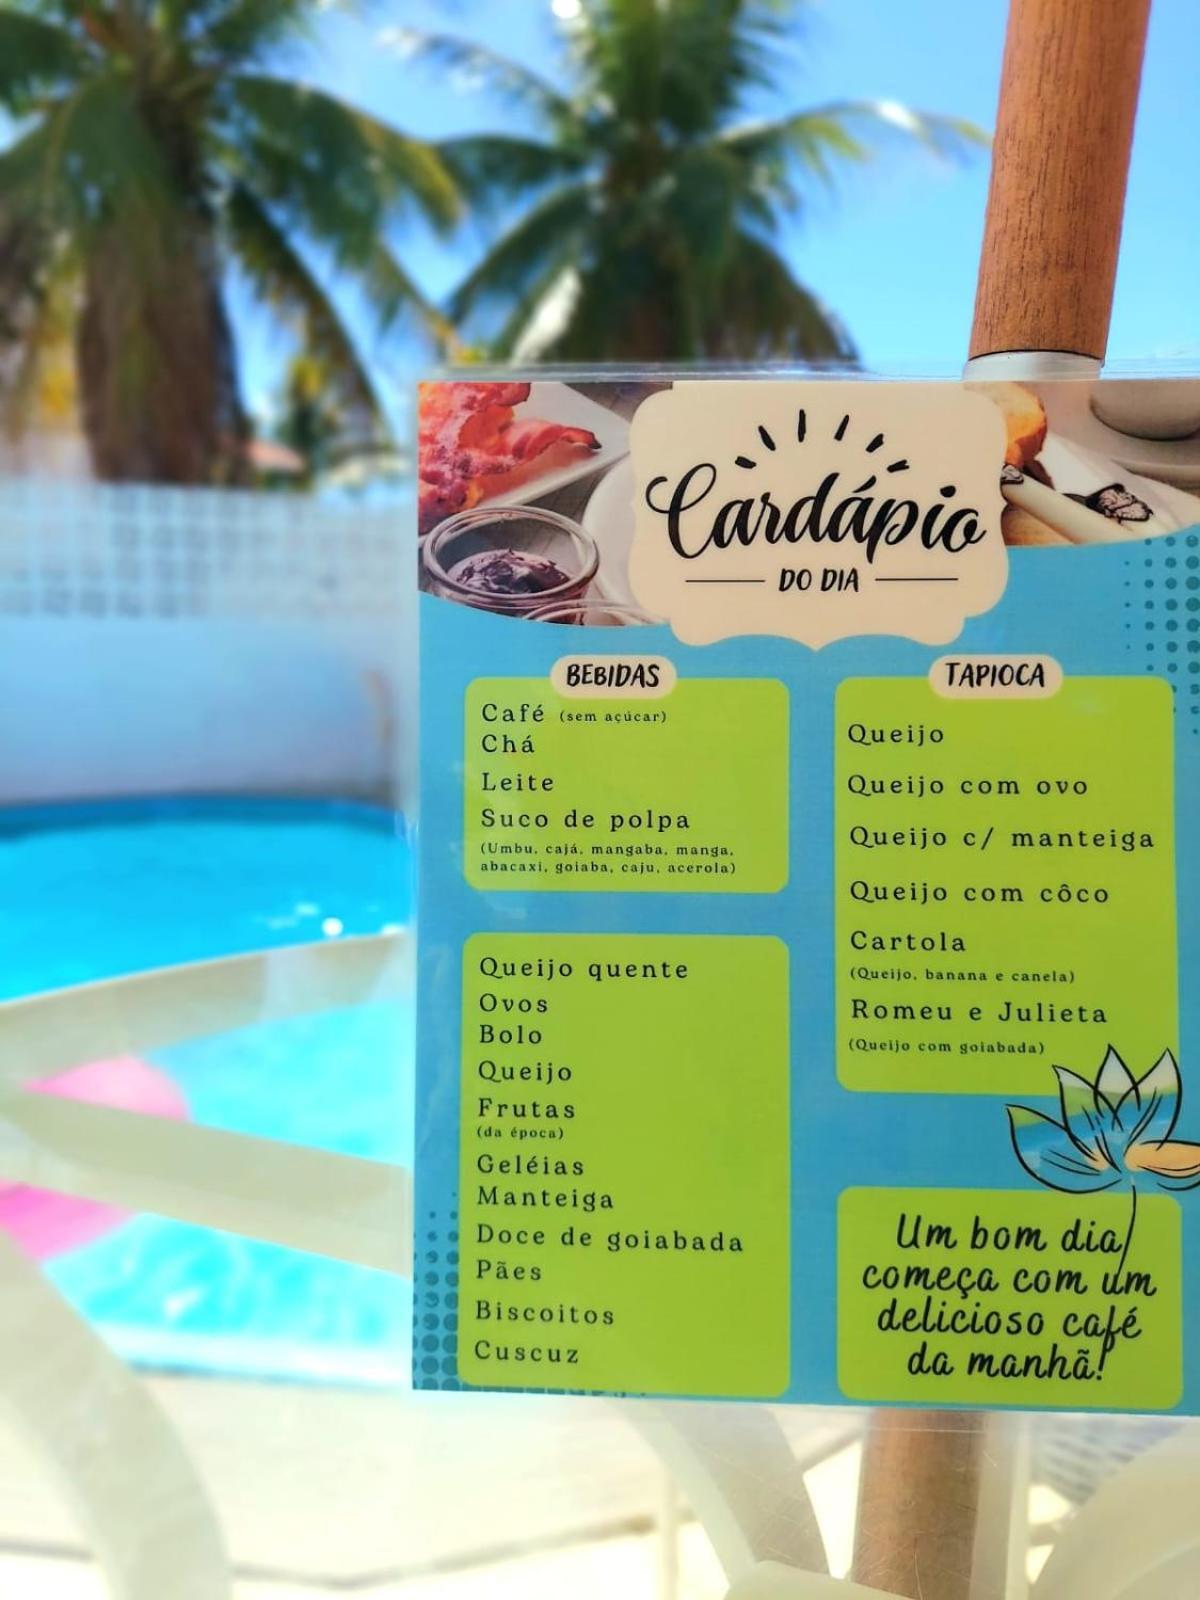 Cardápio
DO DIA
BEBIDAS
Café (sem açúcar)
Chá
Leite
Suco de polpa
(Umbu, cajá, mangaba, manga,
abacaxi, goiaba, caju, acerola)
Queijo quente
Ovos
Bolo
Queijo
Frutas
(da época)
Geléias
Manteiga
Doce de goiabada
Pães
Biscoitos
Cuscuz
TAPIOCA
Queijo
Queijo com ovo
Queijo c/ manteiga
Queijo com côco
Cartola
(Queijo, banana e canela)
Romeu e Julieta
(Queijo com goiabada)
Um bom dia
começa com um
delicioso café
da manhã!